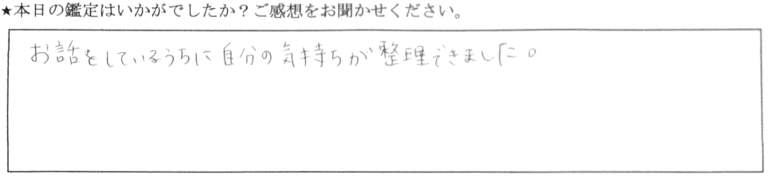 ★本日の鑑定はいかがでしたか？ご感想をお聞かせください。
お話をしているうちに自分の気持ちが整理できました。